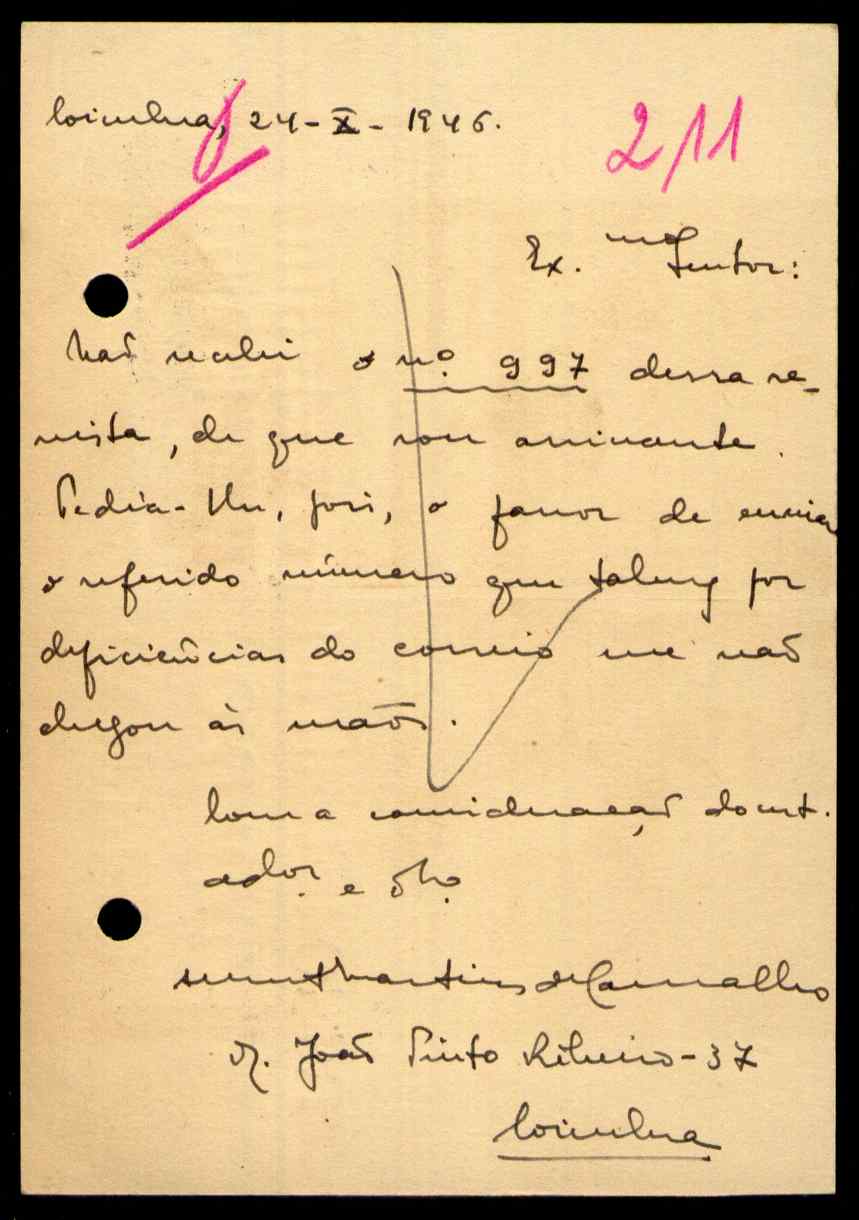 Coimbra, 24-X-1946.
2/11
Ex.mo Senhor:
Não recebi o nº. 997 dessa re-
vista, de que sou assinante.
Pedia-lhe, pois, o favor de enviar
o referido número que talvez por
deficiências do correio me não
chegou às mãos.
Com a consideração do mt.
ador. e obo.
Martins de Carvalho
R. João Pinto Ribeiro-37
Coimbra